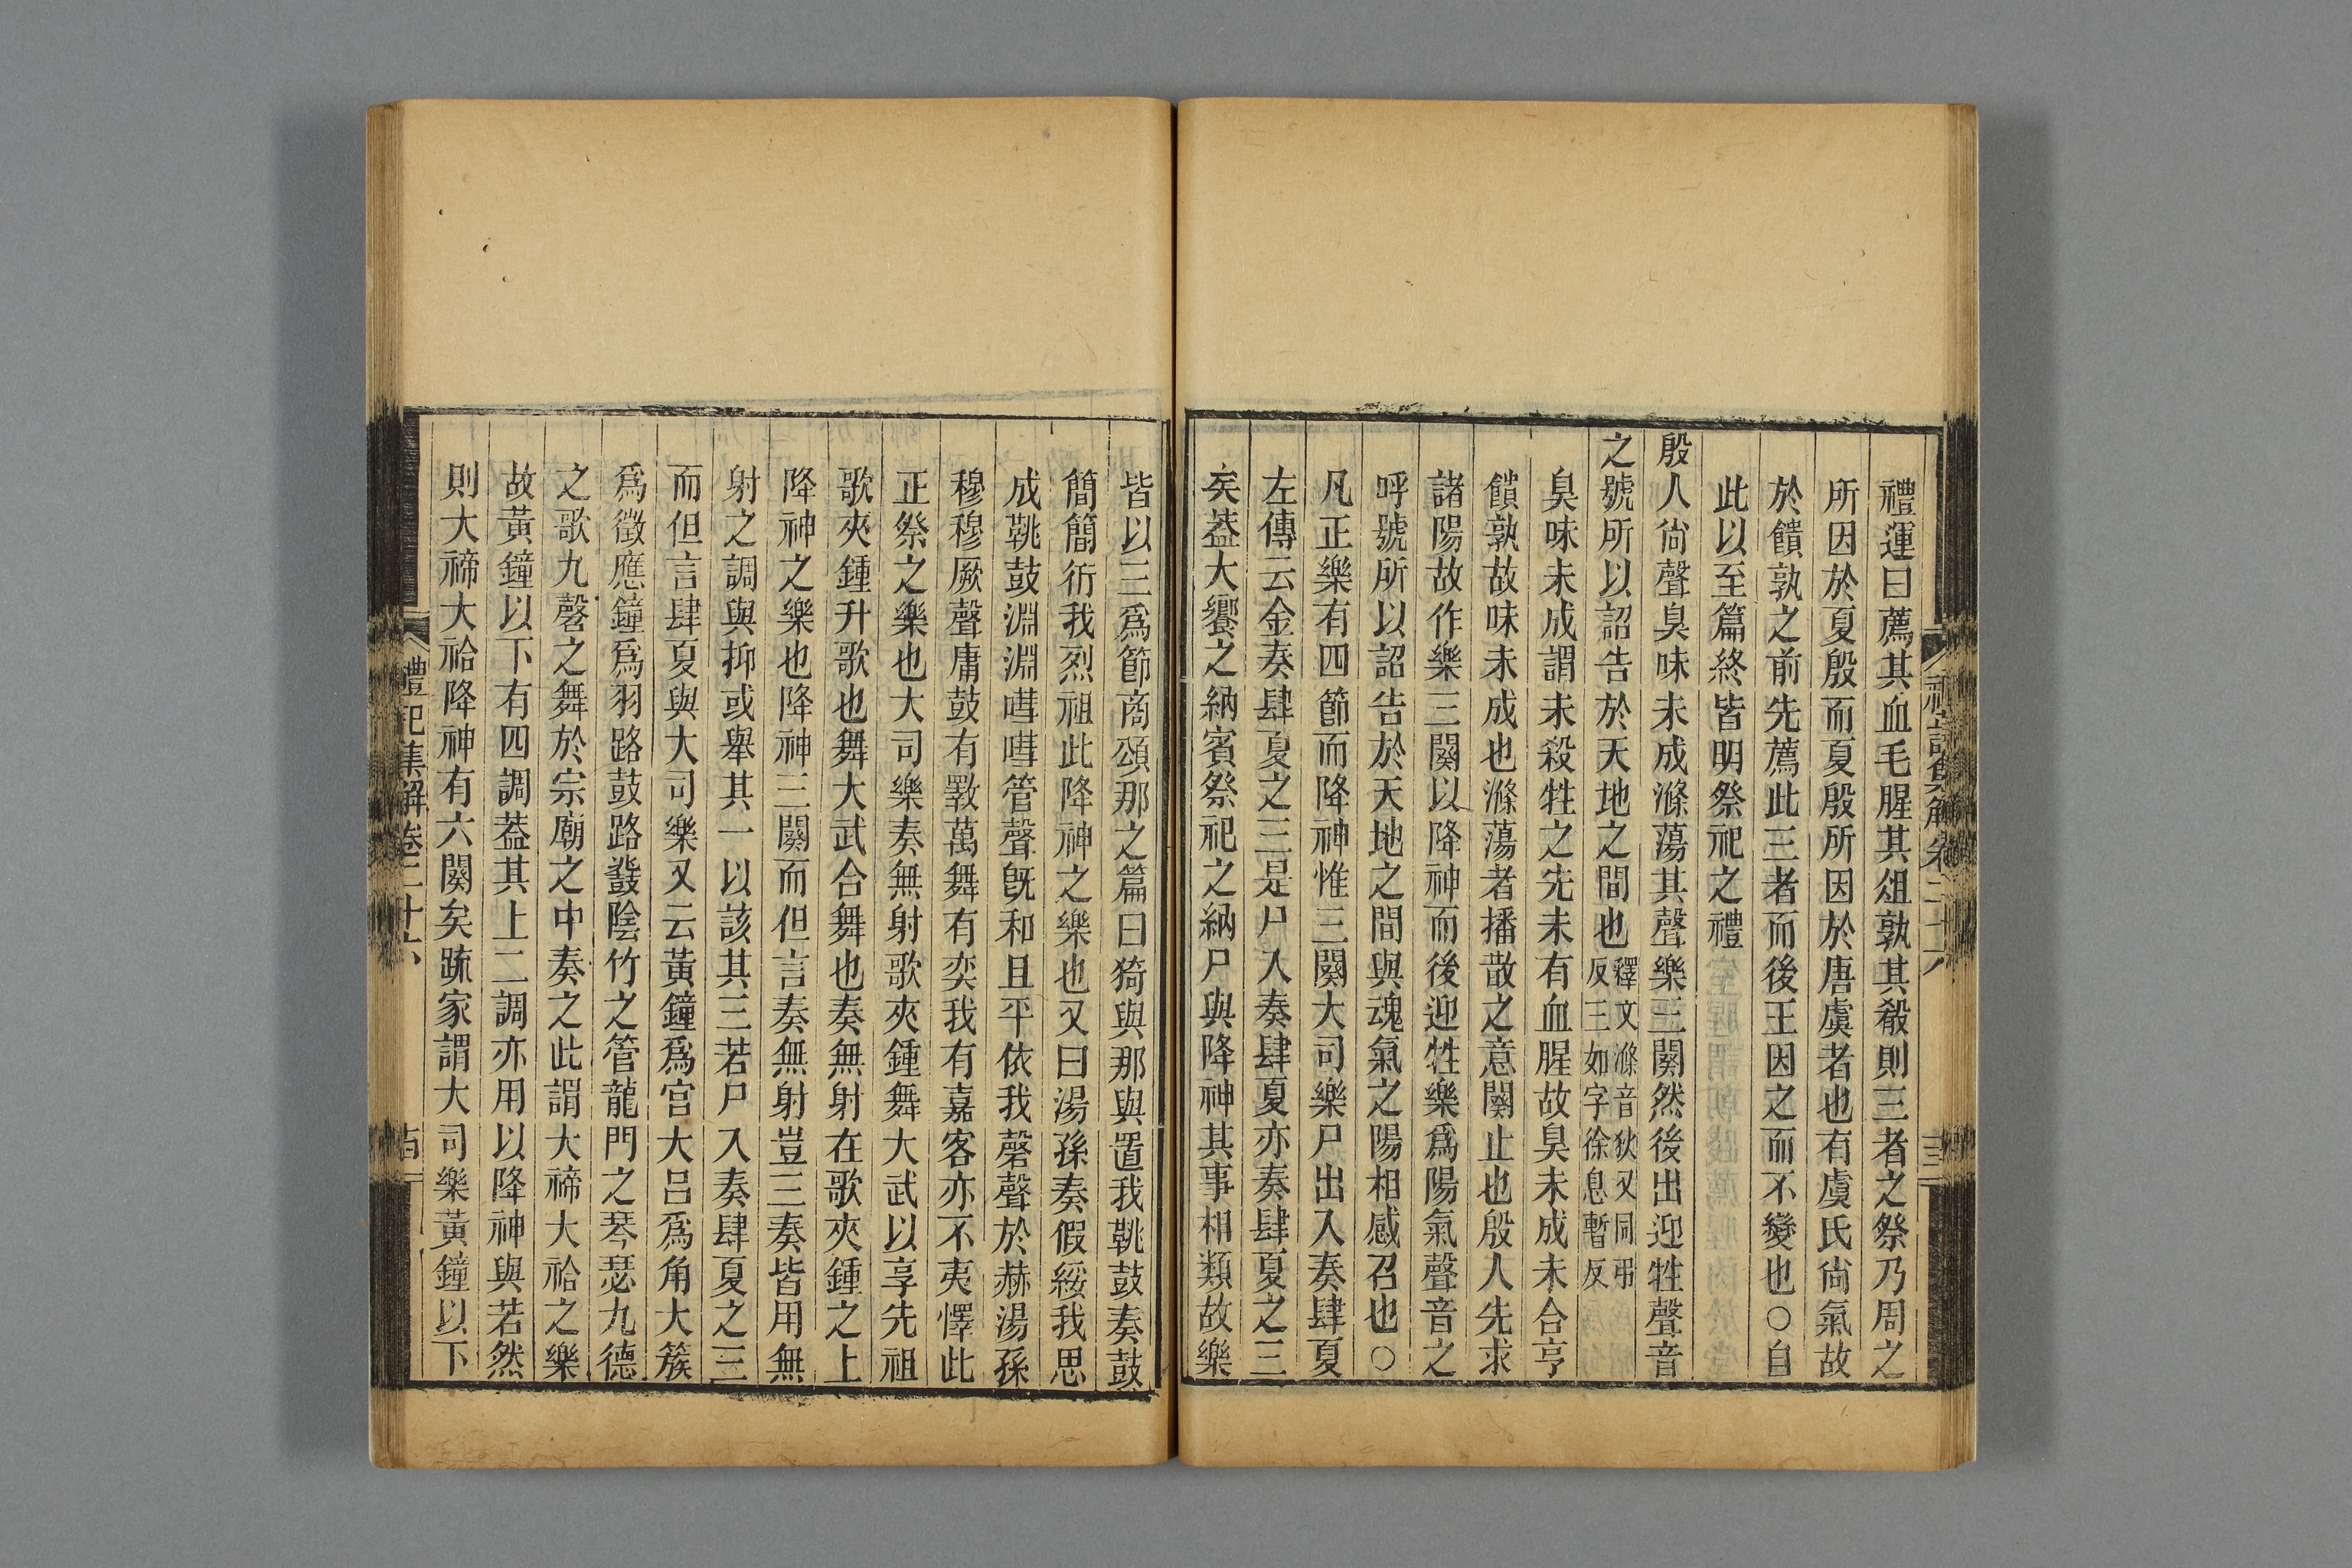 禮運曰薦其血毛腥其俎孰其殽則三者之祭乃周之
所因於夏殷而夏殷所因於唐虞者也有虞氏尙氣故
於饋孰之前先薦此三者而後王因之而不變也○自
此以至篇終皆明祭祀之禮
殷人尙聲臭味未成滌蕩其聲樂三闋然後出迎牲聲音
之號所以詔告於天地之間也釋文滌音狄又同弔反三如字徐息暫反
臭味未成謂未殺牲之先未有血腥故臭未成未合亨
饋孰故味未成也滌蕩者播散之意闋止也殷人先求
諸陽故作樂三闋以降神而後迎牲樂爲陽氣聲音之
呼號所以詔告於天地之間與魂氣之陽相感召也○
凡正樂有四節而降神惟三闋大司樂尸出入奏肆夏
左傳云金奏肆夏之三是尸入奏肆夏亦奏肆夏之三
矣葢大饗之納賓祭祀之納尸與降神其事相類故樂
皆以三爲節商頌那之篇曰猗與那與置我鞉鼓奏鼓
簡簡衎我烈祖此降神之樂也又曰湯孫奏假綏我思
成鞉鼓淵淵嘒嘒管聲旣和且平依我磬聲於赫湯孫
穆穆厥聲庸鼓有斁萬舞有奕我有嘉客亦不夷懌此
正祭之樂也大司樂奏無射歌夾鍾舞大武以享先祖
歌夾鍾升歌也舞大武合舞也奏無射在歌夾鍾之上
降神之樂也降神三闋而但言奏無射豈三奏皆用無
射之調與抑或舉其一以該其三若尸入奏肆夏之三
而但言肆夏與大司樂又云黃鐘爲宮大呂爲角大簇
爲徵應鐘爲羽路鼓路鼗陰竹之管龍門之琴瑟九德
之歌九磬之舞於宗廟之中奏之此謂大禘大祫之樂
故黃鐘以下有四調葢其上二調亦用以降神與若然
則大禘大祫降神有六闋矣疏家謂大司樂黃鐘以下
禮記集解卷二十六